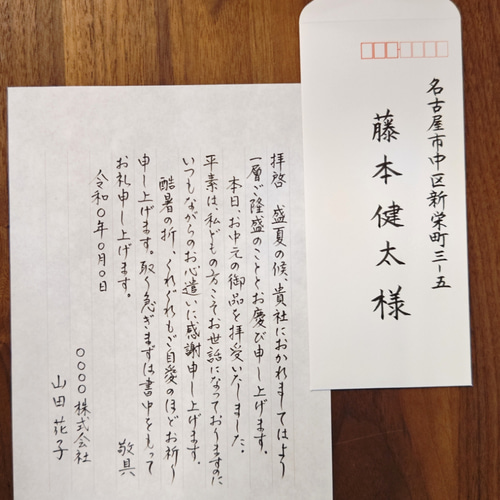 名古屋市中区新栄町三-五
藤本健太様
拝啓　盛夏の候、貴社におかれましてはより
一層ご隆盛のこととお慶び申し上げます。
本日、お中元の御品を拝受いたしました。
平素は、私どもの方こそお世話になっておりますのに
いつもながらのお心遣いに感謝申し上げます。
酷暑の折、くれぐれもご自愛のほどお祈り
申し上げます。取り急ぎまずは書中をもって
お礼申し上げます。
敬具
令和〇年〇月〇日
〇〇〇〇株式会社
山田花子